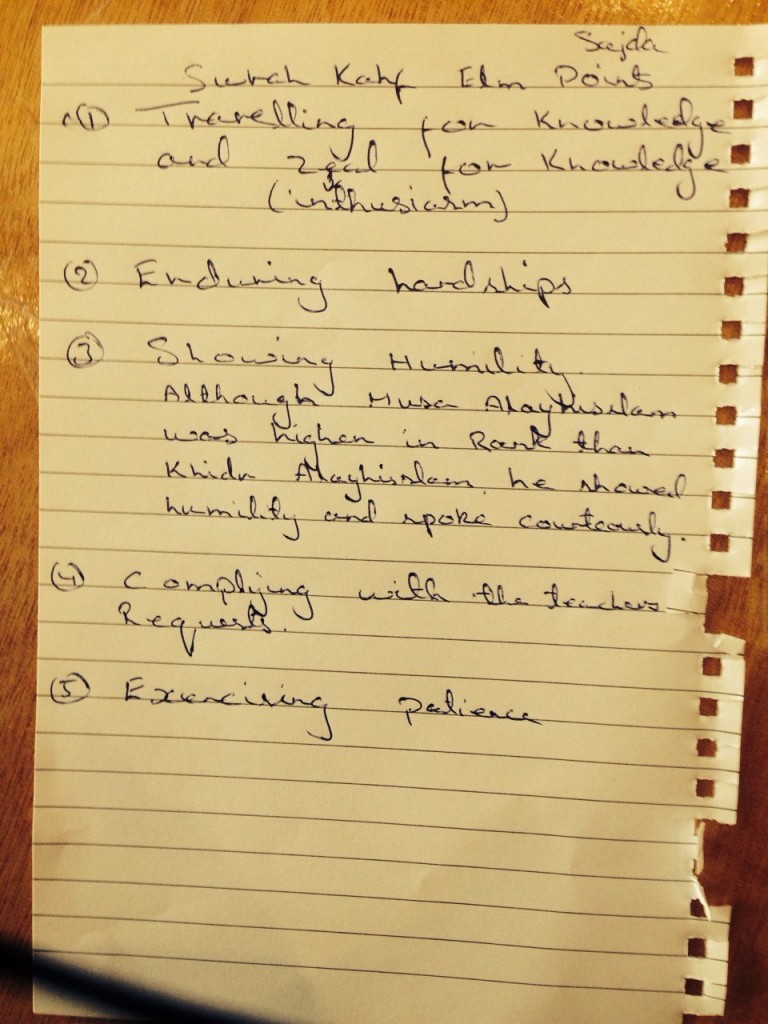 Sajda
Surah Kahf Elm Points
(1) Travelling for Knowledge
and zeal for Knowledge
(inthusiasm)
(2) Enduring hardships
(3) Showing Humility.
Although Musa Alayhisslam
was higher in Rank than
Khidr Alayhisslam, he showed
humility and spoke courteously.
(4) Complying with the teachers
Requests.
(5) Exercising patience